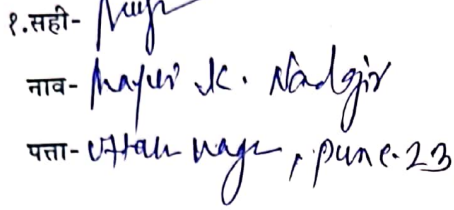 १.सही-
नाव- Mayuri K. Nadgir
पत्ता- Uttam nagar, pune-23